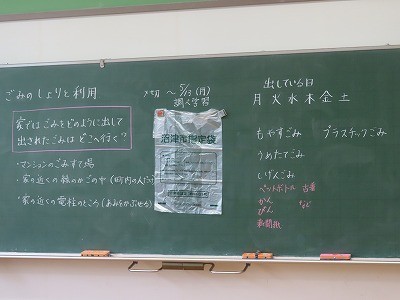 ごみのしょりと利用
家ではごみをどのように出して
出されたごみは どこへ行く?
・マンションのごみすて場
・家の近くの緑のかごの中(町内の人だけ)
・家の近くの電柱のところ(あみをかぶせる)
〆切 〜5/13(月)
調べ学習
沼津市指定袋
出している日
月 火 水 木 金 土
もやすごみ プラスチックごみ
うめたてごみ
しげんごみ
ペットボトル 古着
かん など
びん
新聞紙